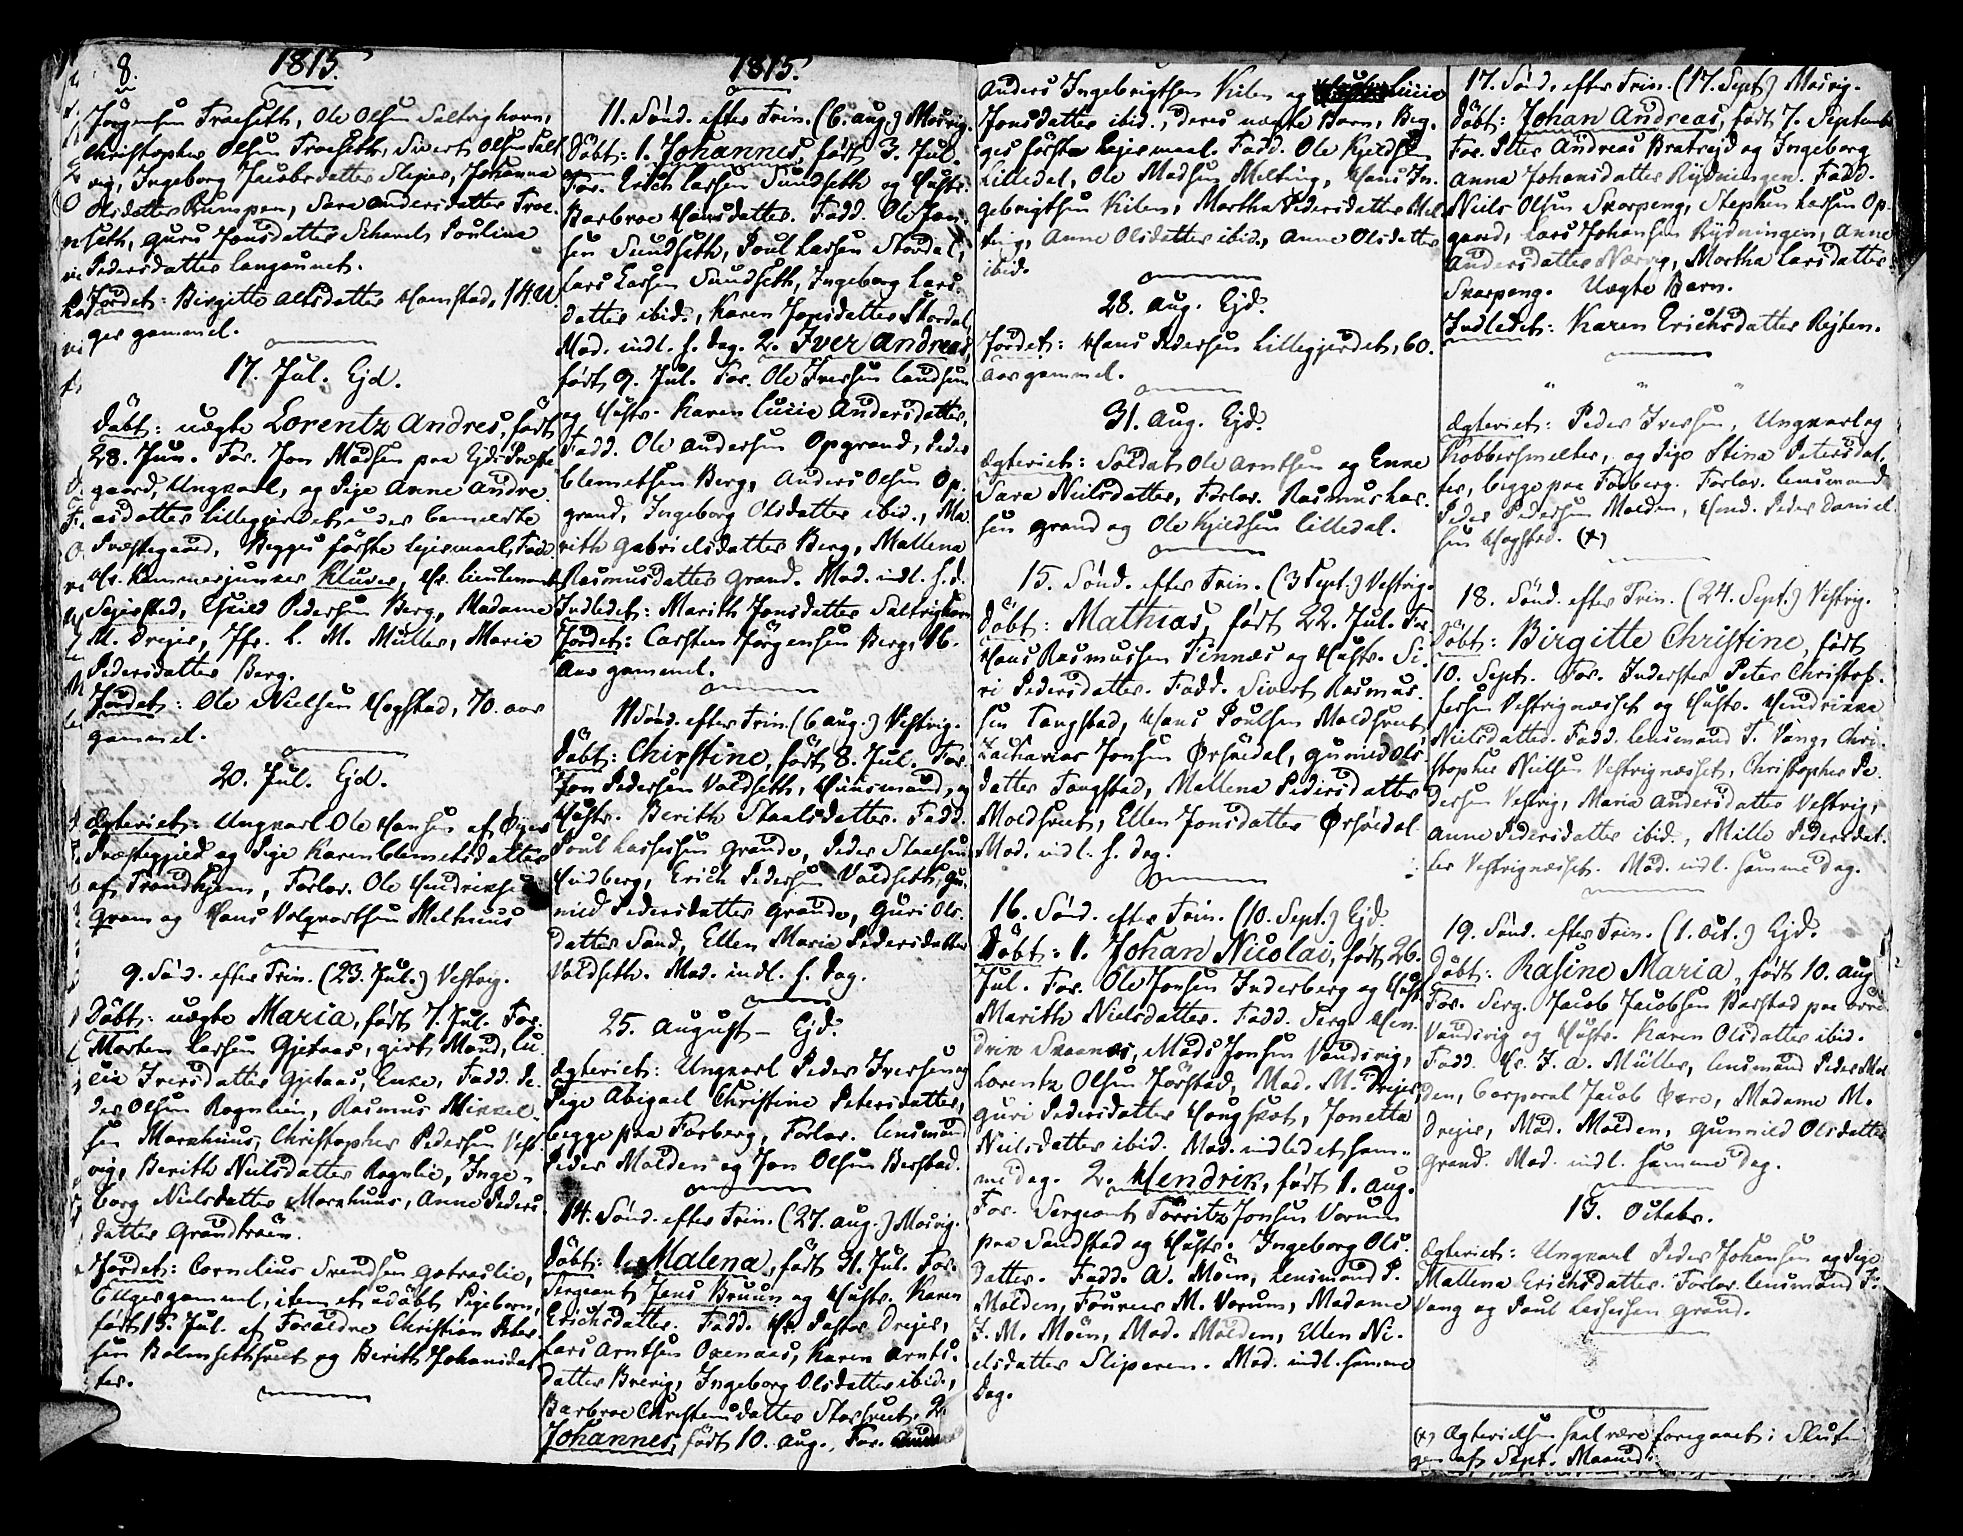 8.
1815.
Jørgensen Troeseth, Ole Olsen Saltvighavn,
Christopher Olsen Troeseth, Sivert Olsen Salt
vig, Ingeborg Jacobsdatter Slejer, Johanna
Olsdatter Rumpen, Sara Andersdatter Troe
seth, Guru Jonsdatter Paulina
Pedersdatter Langaunet.
Jordet: Birgitte Olsdatter Hamstad, 14. U
ger gammel.
17. Jul. Ejd.
Døbt: uægte Lorentz Andreas, født
28. Jun. For. Jon Madsen paa Ejd. Præste
gaard, Ungkarl, og Pige Anne Andre
asdatter Lillegjerdet under bemeldte
Præstegaard, Begges første Lejermaal, Fadd.
Hr. Kammerjunker Kluver, Hr. Lieutenant
Sejersted, Eskild Pedersen Berg, Madame
M. Drejer, Jfr. L. M. Müller, Maria
Pedersdatter Berg.
Jordet: Ole Nielsen Hogstad, 70. aar
gammel.
20. Jul. Ejd.
Ægteviet: Ungkarl Ole Hansen af Øyer
Præstegjeld og Pige Karen Clemetsdatter
af Trondhjem, Forlov. Ole Hendriksen
Gram og Hans Volqvartsen Melhuus
9. Sønd. efter Trin. (23. Jul.) Vestvig.
Døbt: uægte Maria, født 7. Jul. For.
Morten Larsen Gjetaas, gift Mand, Lu
cie Iversdatter Gjetaas, Enke, Fadd. Pe
der Olsen Rognlien, Rasmus Mikkel
sen Markhuus, Christopher Pedersen Vest
vig, Berith Nielsdatter Rognlie, Inge
borg Nielsdatter Markhuus, Anne Peders
datter Grandtrøen.
Jordet: Cornelius Svendsen Gotraslie,
6 Uger gammel, item et udøbt Pigebarn,
født 15. Jul. af Foraldre Christian Peter
sen Bolmsethhret og Berith Johansdat
ter.
1815.
11. Sønd. efter Trin. (6. aug.) Mosvig.
Døbt: 1. Johannes, født 3. Jul.
For. Erich Larsen Sundseth og Hustr.
Barbroe Hansdatter. Fadd. Ole Han
sen Sundseth, Poul Larsen Stordal,
Lars Larsen Sundseth, Ingeborg Lars
datter ibid., Karen Jonsdatter Stordal
Mod. indl. s. dag. 2. Iver Andreas,
født 9. Jul. For. Ole Iversen Landsem
og Hustr. Karen Lucia Andersdatter,
Fadd. Ole Andersen Opgrand, Peder
Clemetsen Berg, Anders Olsen Op
grand, Ingeborg Olsdatter ibid., Ma
rith Gabrielsdatter Berg, Mallena
Rasmusdatter Grand. Mod. indl. s. d.
Indledet: Marith Jonsdatter Saltvighavn
Jordet: Carsten Jørgensen Berg, 16.
Aar gammel.
11 Sønd. efter Trin. (6 aug.) Vestvig.
Døbt: Christine, født 8. Jul. For.
Jon Pedersen Valdseth, Huusmand, og
Hustr. Berith Staalsdatter. Fadd.
Poul Lassesen Grande, Peder Staalsen
Hindberg, Erich Pedersen Valdseth, Gu
nild Pedersdatter Grande, Guri Ols
datter Sand, Ellen Maria Pedersdatter
Valdseth. Mod. indl. s. dag.
25. August - Ejd.
Ægteviet: Ungkarl Peder Iversen og
Pige Abigael Christine Petersdatter,
begge paa Farberg, Forlov. Lensmand
Peder Molden og Jon Olsen Berstad.
14. Sønd. efter Trin. (27. aug.) Mosvig.
Døbt: 1. Malena, født 31. Jul. For.
Sergeant Jens Bruun og Hustr. Karen
Erichsdatter. Fadd. Hr. Pastor Drejer,
Lars Arntsen Oxenaas, Karen Arnts
datter Brevig, Ingeborg Olsdatter ibid.,
Barbroe Christensdatter Storhret. 2.
Johannes, født 10. aug., For.
Anders Ingebrigtsen Kilen og Lucia
Jonsdatter ibid., deres uægte Barn, Beg
ges første Lejermaal. Fadd. Ole Kjeldsen
Lilledal, Ole Madsen Melting, Hans In
gebrigtsen Kilen, Martha Pedersdatter Mel
ting, Anne Olsdatter ibid., Anne Olsdatter
ibid.
28. Aug. Ejd.
Jordet: Hans Pedersen Lillegjerdet, 60.
aar gammel.
31. Aug. Ejd.
Ægteviet: Soldat Ole Arntsen og Enke
Sara Nielsdatter, Forlov. Rasmus Lar
sen Grand og Ole Kjeldsen Lilledal.
15. Sønd. efter Trin. (3 Sept.) Vestvig.
Døbt: Mathias, født 22. Jul. For.
Hans Rasmussen Finnæs og Hustr. Si
ri Pedersdatter. Fadd. Sivert Rasmus
sen Tangstad, Hans Poulsen Moldhret
Zacharias Jonsen Ørsjødal, Gunild Ols
datter Tangstad, Mallena Pedersdatter
Moldhret, Ellen Jonsdatter Ørsjødal
Mod. indl. s. dag.
16. Sønd. efter Trin. (10. Sept.) Ejd.
Døbt: 1. Johan Nicolai, født 26.
Jul. For. Ole Jonsen Inderberg og Hust.
Marith Nielsdatter. Fadd. Serg. Hen
drik Skaanes, Mads Jonsen Vandsvig,
Lorentz Olsen Jørstad, Mad. M. Drejer
Guri Pedersdatter Haugskot, Jonetta
Nielsdatter ibid. Mod. indledet sam
me dag. 2. Hendrik, født 1. aug.
For. Sergeant Torritz Jonsen Vorum
paa Sandstad og Hustr. Ingeborg Ols
datter. Fadd. A. Møin, Lensmand P.
Molden, Fourer M. Vorum, Madame
J. M. Møin, Mad. Molden, Ellen Ni
elsdatter Sliparen. Mod. indl. samme
dag.
17. Sønd. efter Trin. (17. Sept) Mosvig.
Døbt: Johan Andreas, født 7. September
For. Peter Andreas Bratrejd og Ingeborg
Anna Johansdatter Rydningen. Fadd.
Niels Olsen Skarpeng, Stephen Larsen Op
grand, Lars Johansen Rydningen, Anne
Andersdatter Nærvig, Martha Larsdatter
Skarpeng. Uægte Barn.
Indledet: Karen Erichsdatter Rejten.
" " "
Ægteviet: Peder Iversen, Ungkarl og
Kobbersmelter, og Pige Stina Petersdat
ter, begge paa Farberg. Forlov. Lensmand
Peder Pedersen Molden, Hend. Peder Daniel
sen Hogstad. (x)
18. Sønd. efter Trin. (24. Sept.) Vestvig.
Døbt: Birgitte Christine, født
10. Sept. For. Inderster Peter Christof
fersen Vestvignesset og Hustr. Hendrikka
Nielsdatter. Fadd. Lensmand T. Vang, Chri
stopher Nielsen Vestvignæsset, Christopher Pe
dersen Vestvig, Maria Andersdatter Vestvig,
Anne Pedersdatter ibid., Mille Pedersdat
ter Vestvignæsset. Mod. indl. samme dag.
19. Sønd. efter Trin. (1. Oct.) Ejd.
Døbt: Rasine Maria, født 10. aug
For. Serg. Jacob Jacobsen Barstad paa
Vandsvig og Hustr. Karen Olsdatter ibid.
Fadd. Hr. J. A. Müller, Lensmand Peder Mol
den, Corporal Jacob Øvre, Madame M.
Drejer, Mad. Molden, Gunnild Olsdatter
Grand. Mod. indl. samme dag.
15. Octobr.
Ægteviet: Ungkarl Peder Johansen og Pige
Mallena Erichsdatter. Forlov. Lensmand T.
Vang og Poul Lassesen Grand.
(x) Ægtevielsen skal være foregaaet i Slutnin
gen af Sept. Maaned.